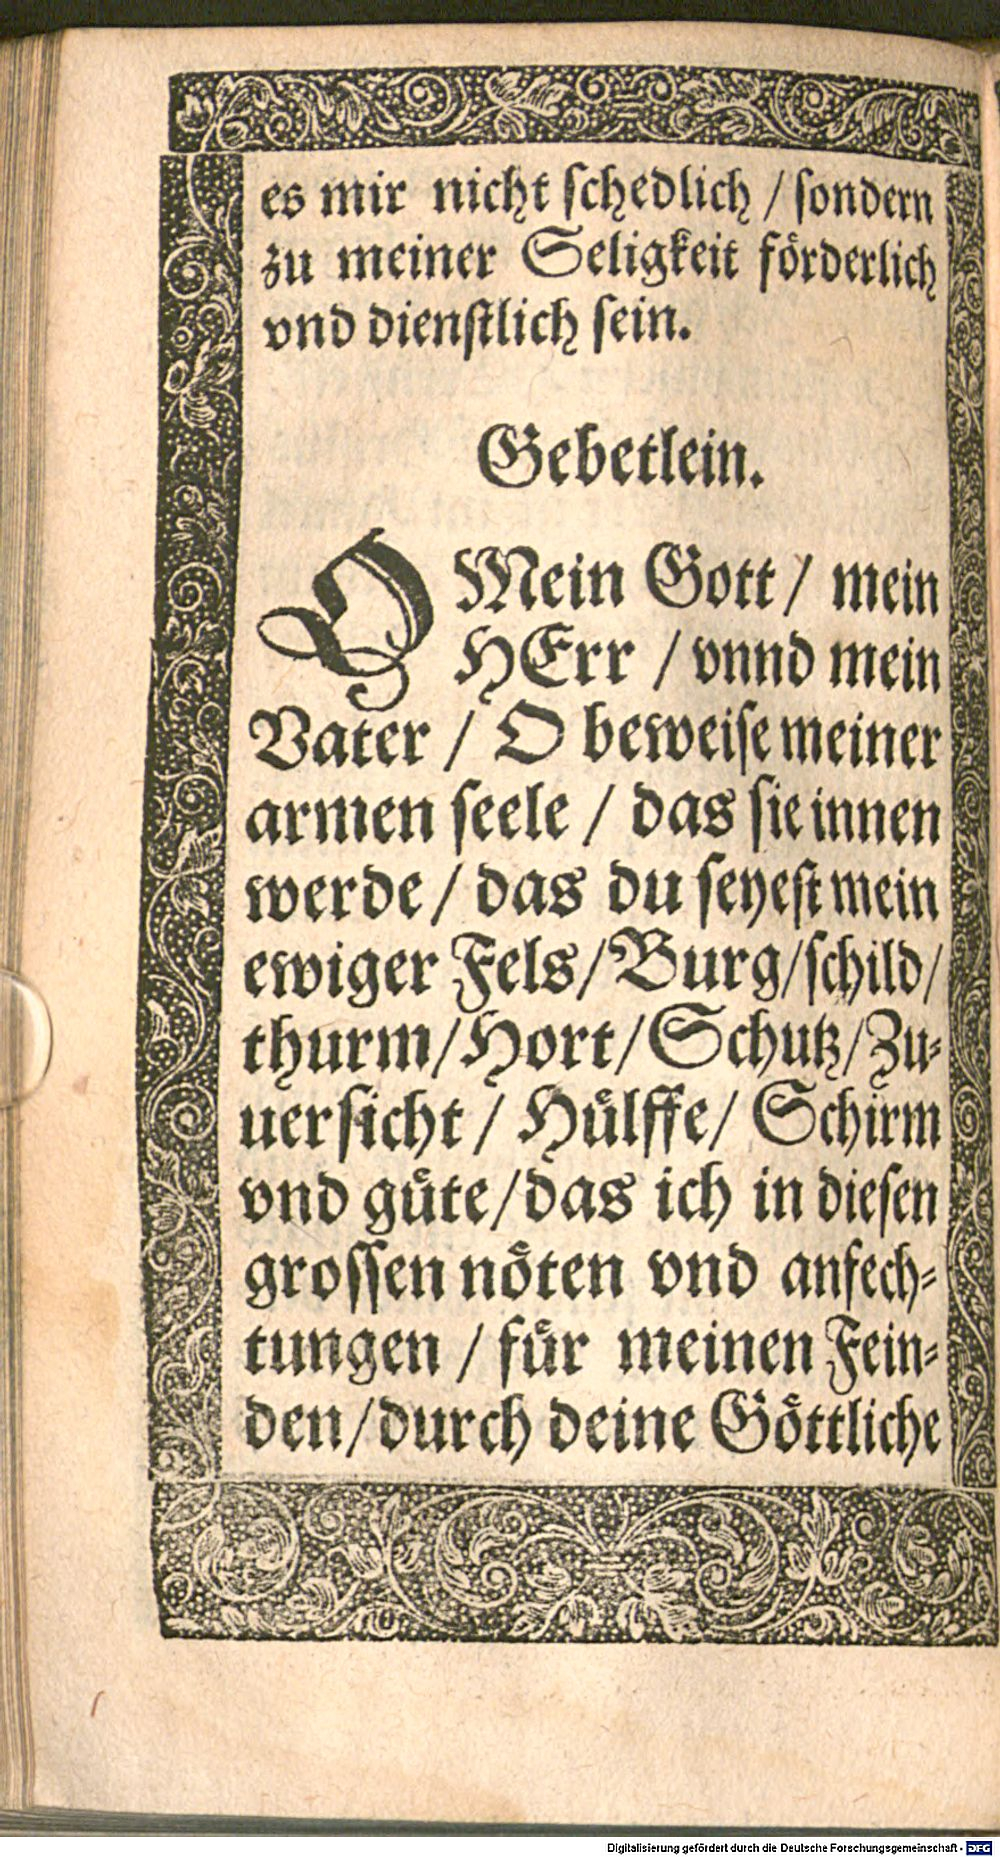 es mir nicht schedlich / sondern
zu meiner Seligkeit förderlich
vnd dienstlich sein.
Gebetlein.
O Mein Gott / mein
HErr / vnnd mein
Vater / O beweise meiner
armen seele / das sie innen
werde / das du seyest mein
ewiger Fels / Burg / schild /
thurm / Hort / Schutz / Zu-
uersicht / Hülffe / Schirm
vnd güte / das ich in diesen
grossen nöten vnd anfech-
tungen / für meinen Fein-
den / durch deine Göttliche
Digitalisierung gefördert durch die Deutsche Forschungsgemeinschaft - DFG